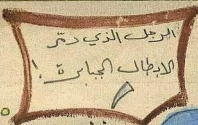 الرجل الذي دمّر
الابطال الجبابرة !